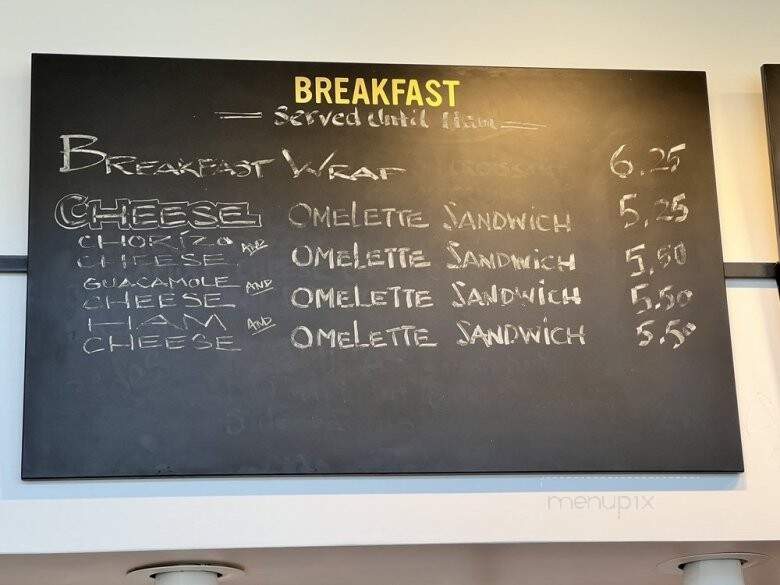 BREAKFAST
Served Until 11am
BREAKFAST WRAP 6.25
CHEESE OMELETTE SANDWICH 5.25
CHORIZO AND
CHEESE OMELETTE SANDWICH 5.50
GUACAMOLE AND
CHEESE OMELETTE SANDWICH 5.50
HAM AND
CHEESE OMELETTE SANDWICH 5.50
menupix